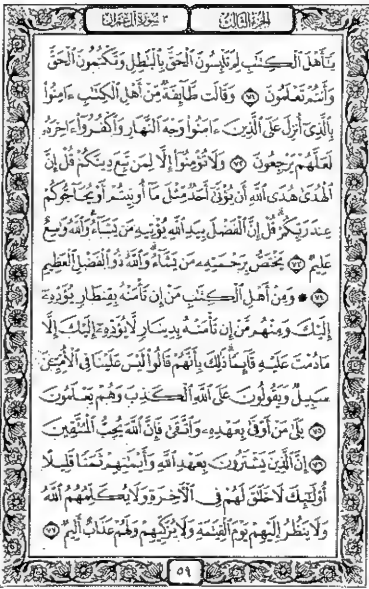 الجزء الثالث ٣ سورة آل عمران
يَٰٓأَهْلَ ٱلْكِتَٰبِ لِمَ تَلْبِسُونَ ٱلْحَقَّ بِٱلْبَٰطِلِ وَتَكْتُمُونَ ٱلْحَقَّ
وَأَنتُمْ تَعْلَمُونَ ٧١ وَقَالَت طَّآئِفَةٌ مِّنْ أَهْلِ ٱلْكِتَٰبِ ءَامِنُوا۟
بِٱلَّذِىٓ أُنزِلَ عَلَى ٱلَّذِينَ ءَامَنُوا۟ وَجْهَ ٱلنَّهَارِ وَٱكْفُرُوٓا۟ ءَاخِرَهُۥ
لَعَلَّهُمْ يَرْجِعُونَ ٧٢ وَلَا تُؤْمِنُوٓا۟ إِلَّا لِمَن تَبِعَ دِينَكُمْ قُلْ إِنَّ
ٱلْهُدَىٰ هُدَى ٱللَّهِ أَن يُؤْتَىٰٓ أَحَدٌ مِّثْلَ مَآ أُوتِيتُمْ أَوْ يُحَآجُّوكُمْ
عِندَ رَبِّكُمْ قُلْ إِنَّ ٱلْفَضْلَ بِيَدِ ٱللَّهِ يُؤْتِيهِ مَن يَشَآءُ وَٱللَّهُ وَٰسِعٌ
عَلِيمٌ ٧٣ يَخْتَصُّ بِرَحْمَتِهِۦ مَن يَشَآءُ وَٱللَّهُ ذُو ٱلْفَضْلِ ٱلْعَظِيمِ
٧٤ ۞ وَمِنْ أَهْلِ ٱلْكِتَٰبِ مَنْ إِن تَأْمَنْهُ بِقِنطَارٍ يُؤَدِّهِۦٓ
إِلَيْكَ وَمِنْهُم مَّنْ إِن تَأْمَنْهُ بِدِينَارٍ لَّا يُؤَدِّهِۦٓ إِلَيْكَ إِلَّا
مَا دُمْتَ عَلَيْهِ قَآئِمًا ذَٰلِكَ بِأَنَّهُمْ قَالُوا۟ لَيْسَ عَلَيْنَا فِى ٱلْأُمِّيِّۦنَ
سَبِيلٌ وَيَقُولُونَ عَلَى ٱللَّهِ ٱلْكَذِبَ وَهُمْ يَعْلَمُونَ
٧٥ بَلَىٰ مَنْ أَوْفَىٰ بِعَهْدِهِۦ وَٱتَّقَىٰ فَإِنَّ ٱللَّهَ يُحِبُّ ٱلْمُتَّقِينَ
٧٦ إِنَّ ٱلَّذِينَ يَشْتَرُونَ بِعَهْدِ ٱللَّهِ وَأَيْمَٰنِهِمْ ثَمَنًا قَلِيلًا
أُو۟لَٰٓئِكَ لَا خَلَٰقَ لَهُمْ فِى ٱلْءَاخِرَةِ وَلَا يُكَلِّمُهُمُ ٱللَّهُ
وَلَا يَنظُرُ إِلَيْهِمْ يَوْمَ ٱلْقِيَٰمَةِ وَلَا يُزَكِّيهِمْ وَلَهُمْ عَذَابٌ أَلِيمٌ ٧٧
٥٩